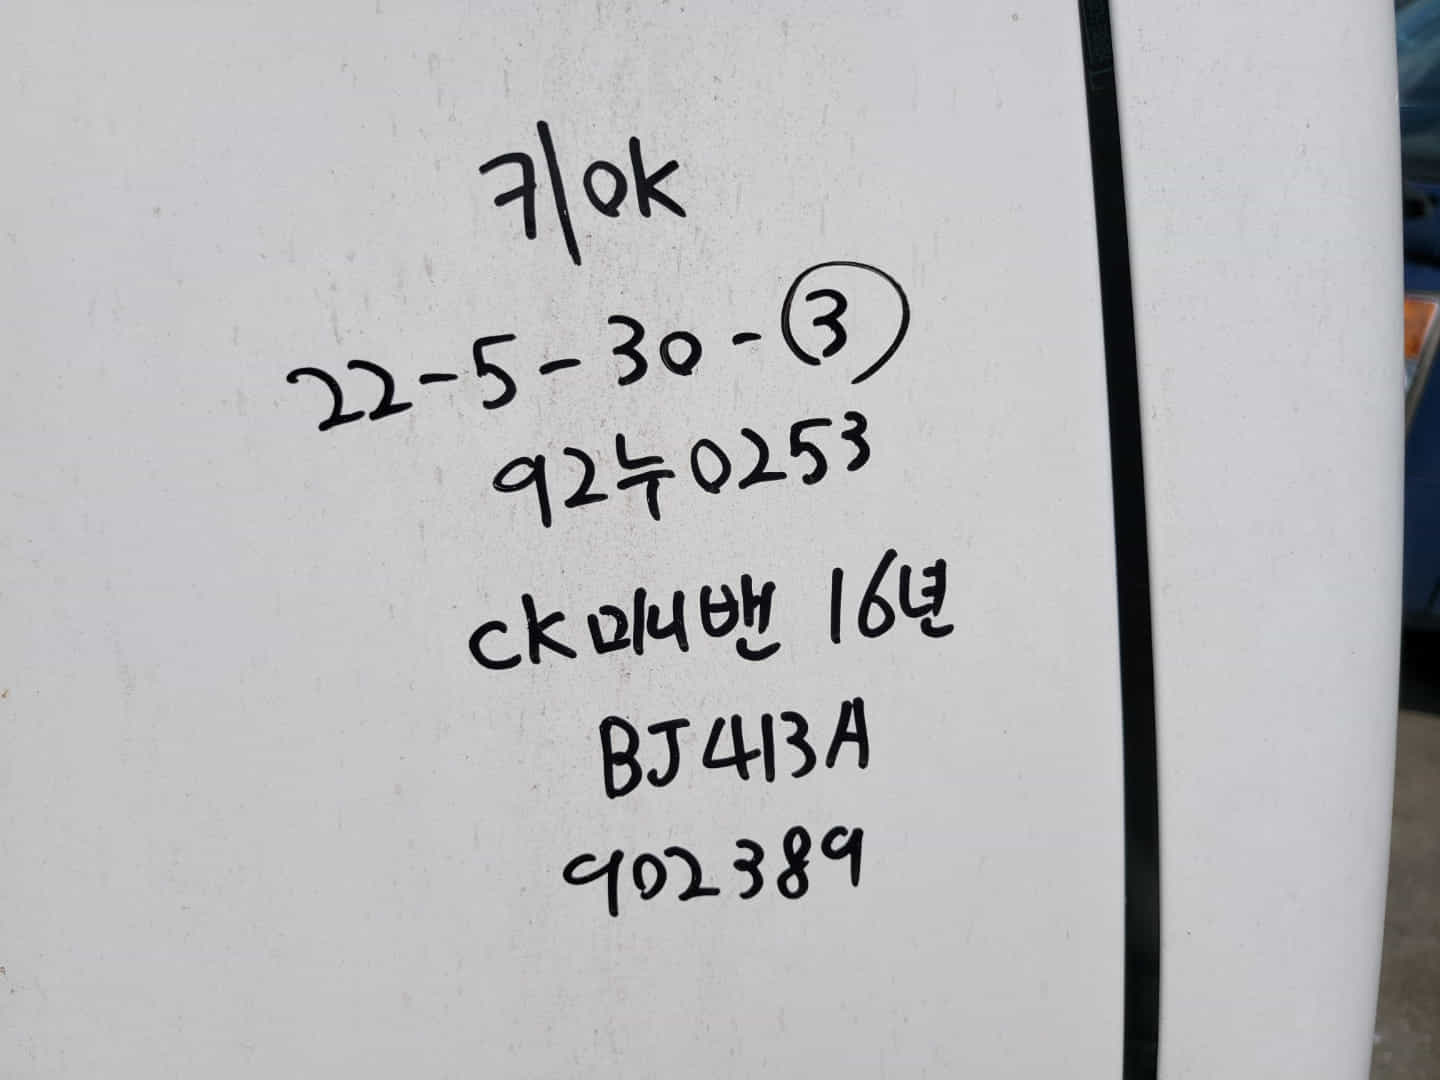 키OK
22-5-30-③
92누0253
CK미니밴 16년
BJ413A
902389